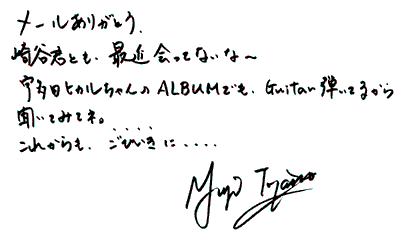 メールありがとう、
崎谷君とも、最近会ってないな〜
宇多田ヒカルちゃんのALBUMでも、Guitar弾いてるから
聞いてみてネ。
これからも、ごひいきに....